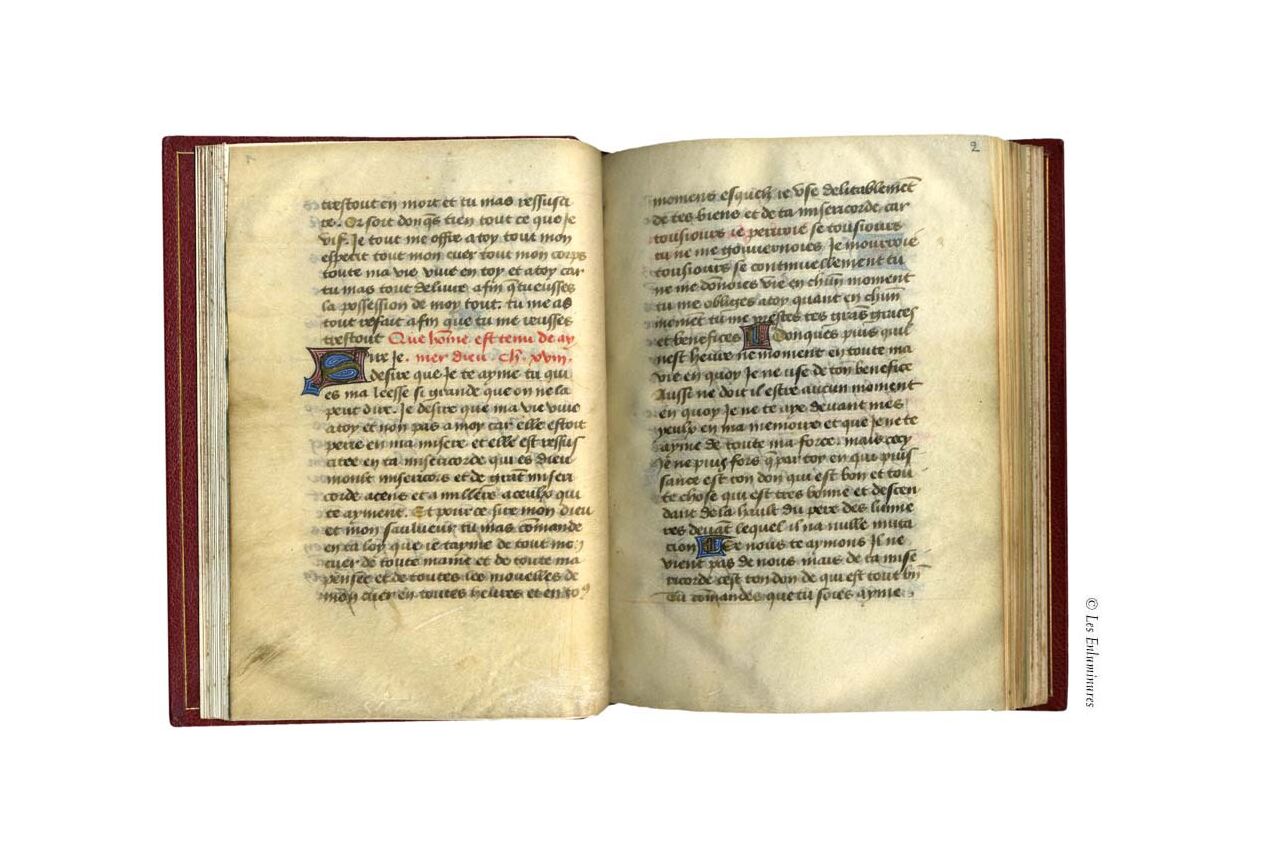 trestout en mort et tu mas ressusci
te. Or sort donq̄s tien tout ce que je
vif. Je tout me offre a toy tout mon
esperit tout mon cuer tout mon corps
toute ma vie vive en toy et a toy car
tu mas tout delivre afin q̄ tu eusses
la possession de moy tout. tu me as
tout refait afin que tu me reusses
trestout Que hōme est tenu de ay
Sire je. mer dieu. Ch. xviij.
desire que je te ayme tu qui
es ma leesse si grande que on ne la
peut dire. Je desire que ma vie vive
a toy et non pas a moy car elle estoit
perie en ma misere et elle est ressus
citee en ta misericorde qui es dieu
moult misericors et de grāt miseri
corde a cens et a milliers a ceulx qui
te ayment. Et pour ce sire mon dieu
et mon saulveur tu mas cōmande
en ta loy que je tayme de tout mon
cuer de toute mame et de toute ma
pensee et de toutes les mouelles de
mon cuer en toutes heures et en to9
2
momens esquelz je vse delitablemēt
de tes biens et de ta misericorde car
tousiours je periroie se tousiours
tu ne me gouvernoies. Je mourroie
tousiours se continuellement tu
ne me dōnoies vie en chūn moment
tu me obliges a toy quant en chūn
momēt tu me prestes tes grās graces
et benefices Donques puis quil
nest heure ne moment en toute ma
vie en quoy Je ne use de ton benefice
Aussi ne doit il estre aucun moment
en quoy Je ne te aye devant mes
yeulx en ma memoire et que je ne te
ayme de toute ma force. mais cecy
Je ne puis fors q̄ par toy en qui puis
sance est ton don qui est bon et tou
te chose qui est tres bonne et descen
dant de la hault du pere des lumie
res devāt lequel il na nulle muta
cion Ce nous te aymons Il ne
vient pas de nous mais de ta mise
ricorde cest ton don de qui est tout bn̄
Tu cōmandes que tu soies ayme
© Les Enluminures